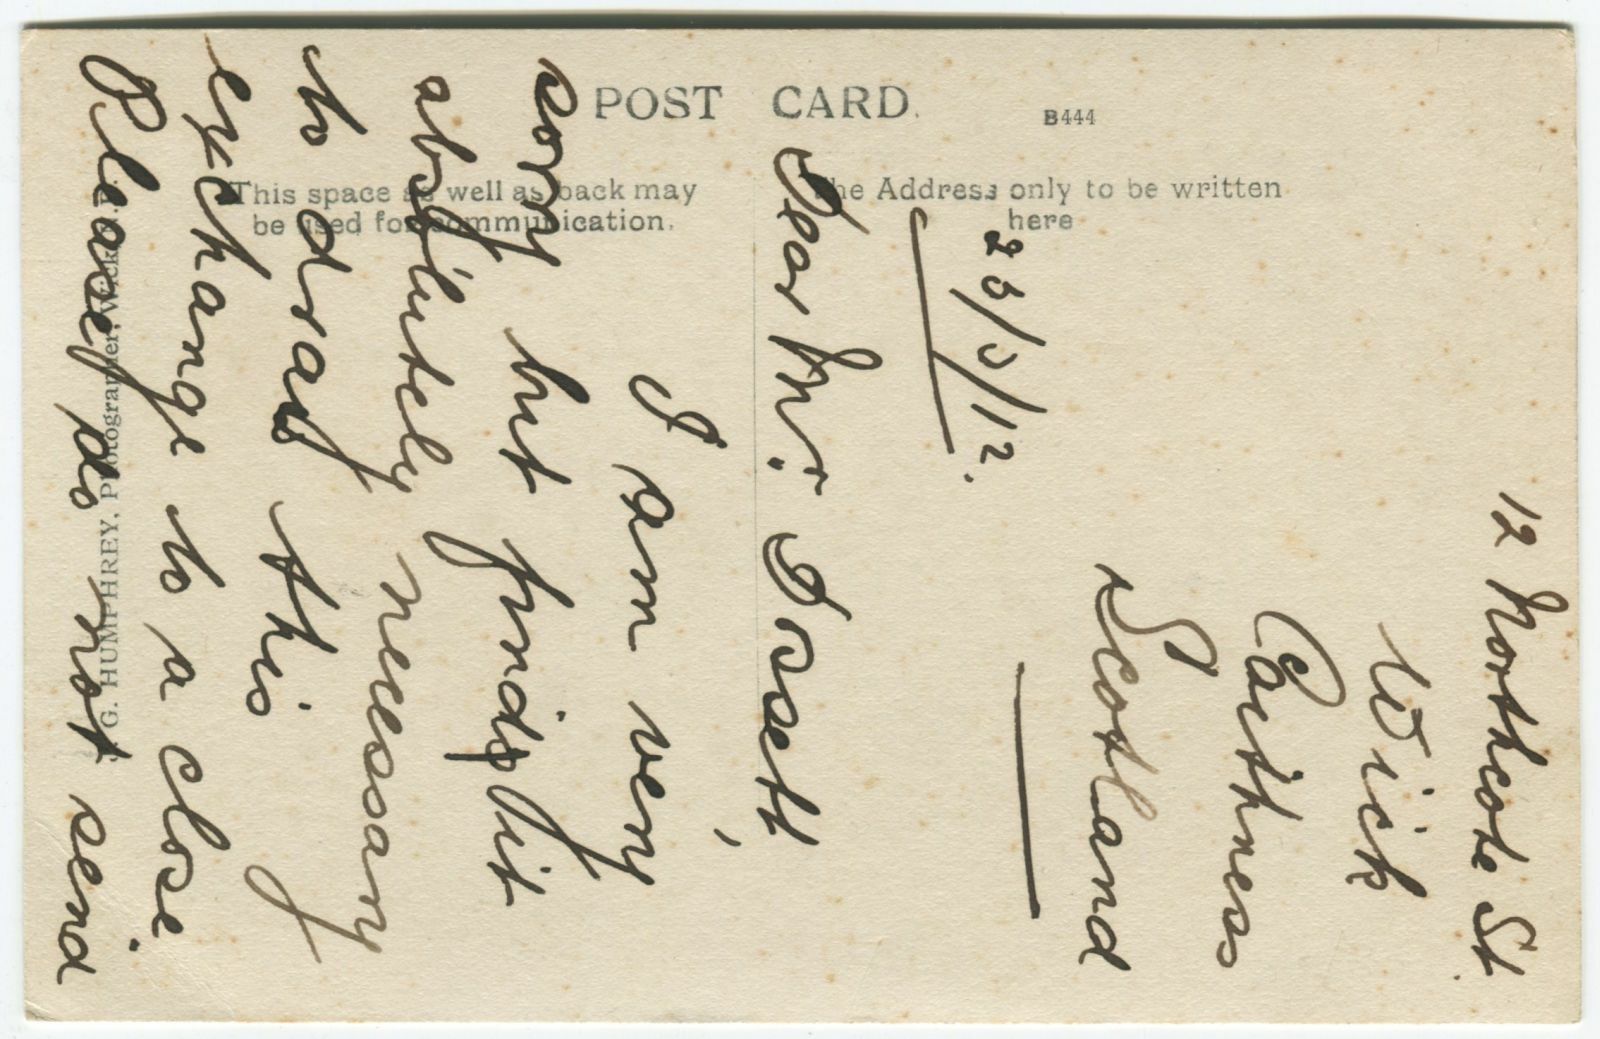 POST CARD.
B444
This space as well as back may
be used for communication.
The Address only to be written
here
G. HUMPHREY, Photographer, Wick
12 Northcote St.
Wick
Caithness
Scotland
23/3/12.
Dear Mr. Dosett,
I am very
sorry but find it
absolutely necessary
to draw this
exchange to a close.
Please do not send